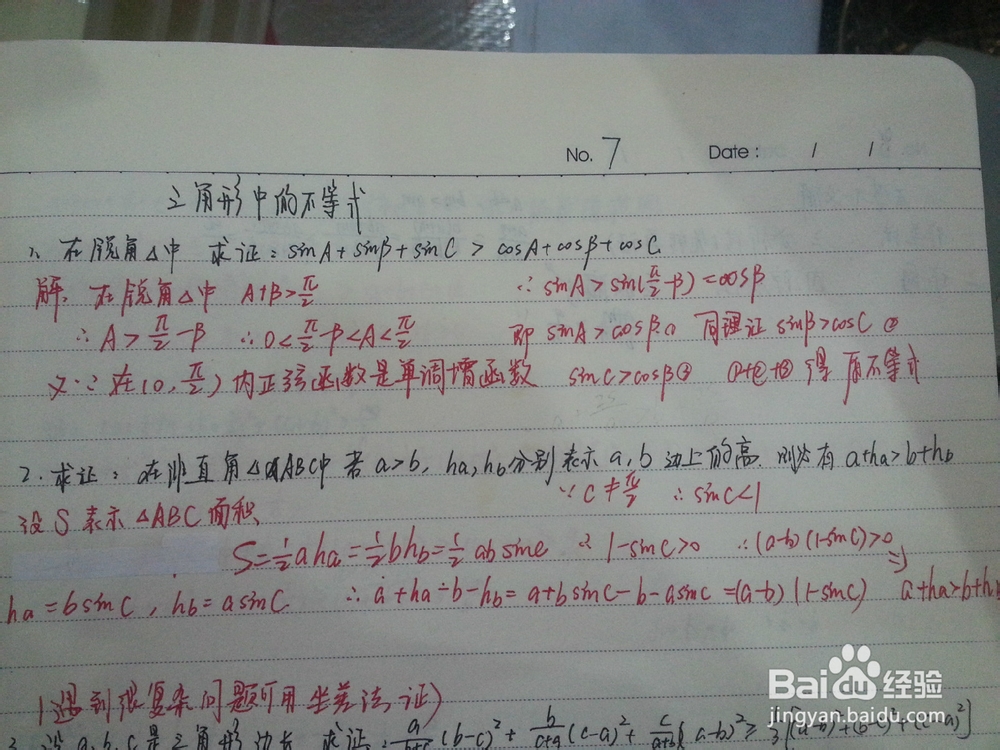 No. 7 Date: / /
三角形中的不等式
1、在锐角△中 求证:sinA+sinB+sinC > cosA+cosB+cosC
解、在锐角△中 A+B>π/2 ∴ sinA>sin(π/2-B)=cosB
∴ A>π/2-B ∴0<π/2-B<A<π/2 即 sinA>cosB① 同理证 sinB>cosC ②
又∵在(0,π/2)内正弦函数是单调增函数 sinC>cosB③ ①+②+③ 得 原不等式
2、求证:在非直角△ABC中 若 a>b, ha,hb分别表示 a,b 边上的高. 则必有 a+ha>b+hb
∵ C≠π/2 ∴ sinC<1
设 S 表示 △ABC 面积
S=½aha=½bhb=½absinC ∴ 1-sinC>0 ∴(a-b)(1-sinC)>0
=>
ha=bsinC, hb=asinC ∴ a+ha-b-hb=a+bsinC-b-asinC=(a-b)(1-sinC) a+ha>b+hb
(遇到很复杂问题可用坐差法证)
3、设 a,b,c是三角形边长 求证:a/(b+c)(b-c)²+b/(c+a)(c-a)²+c/(a+b)(a-b)²≥1/3[(a-b)²+(b-c)²+(c-a)²]
Baidu 经验
jingyan.baidu.com